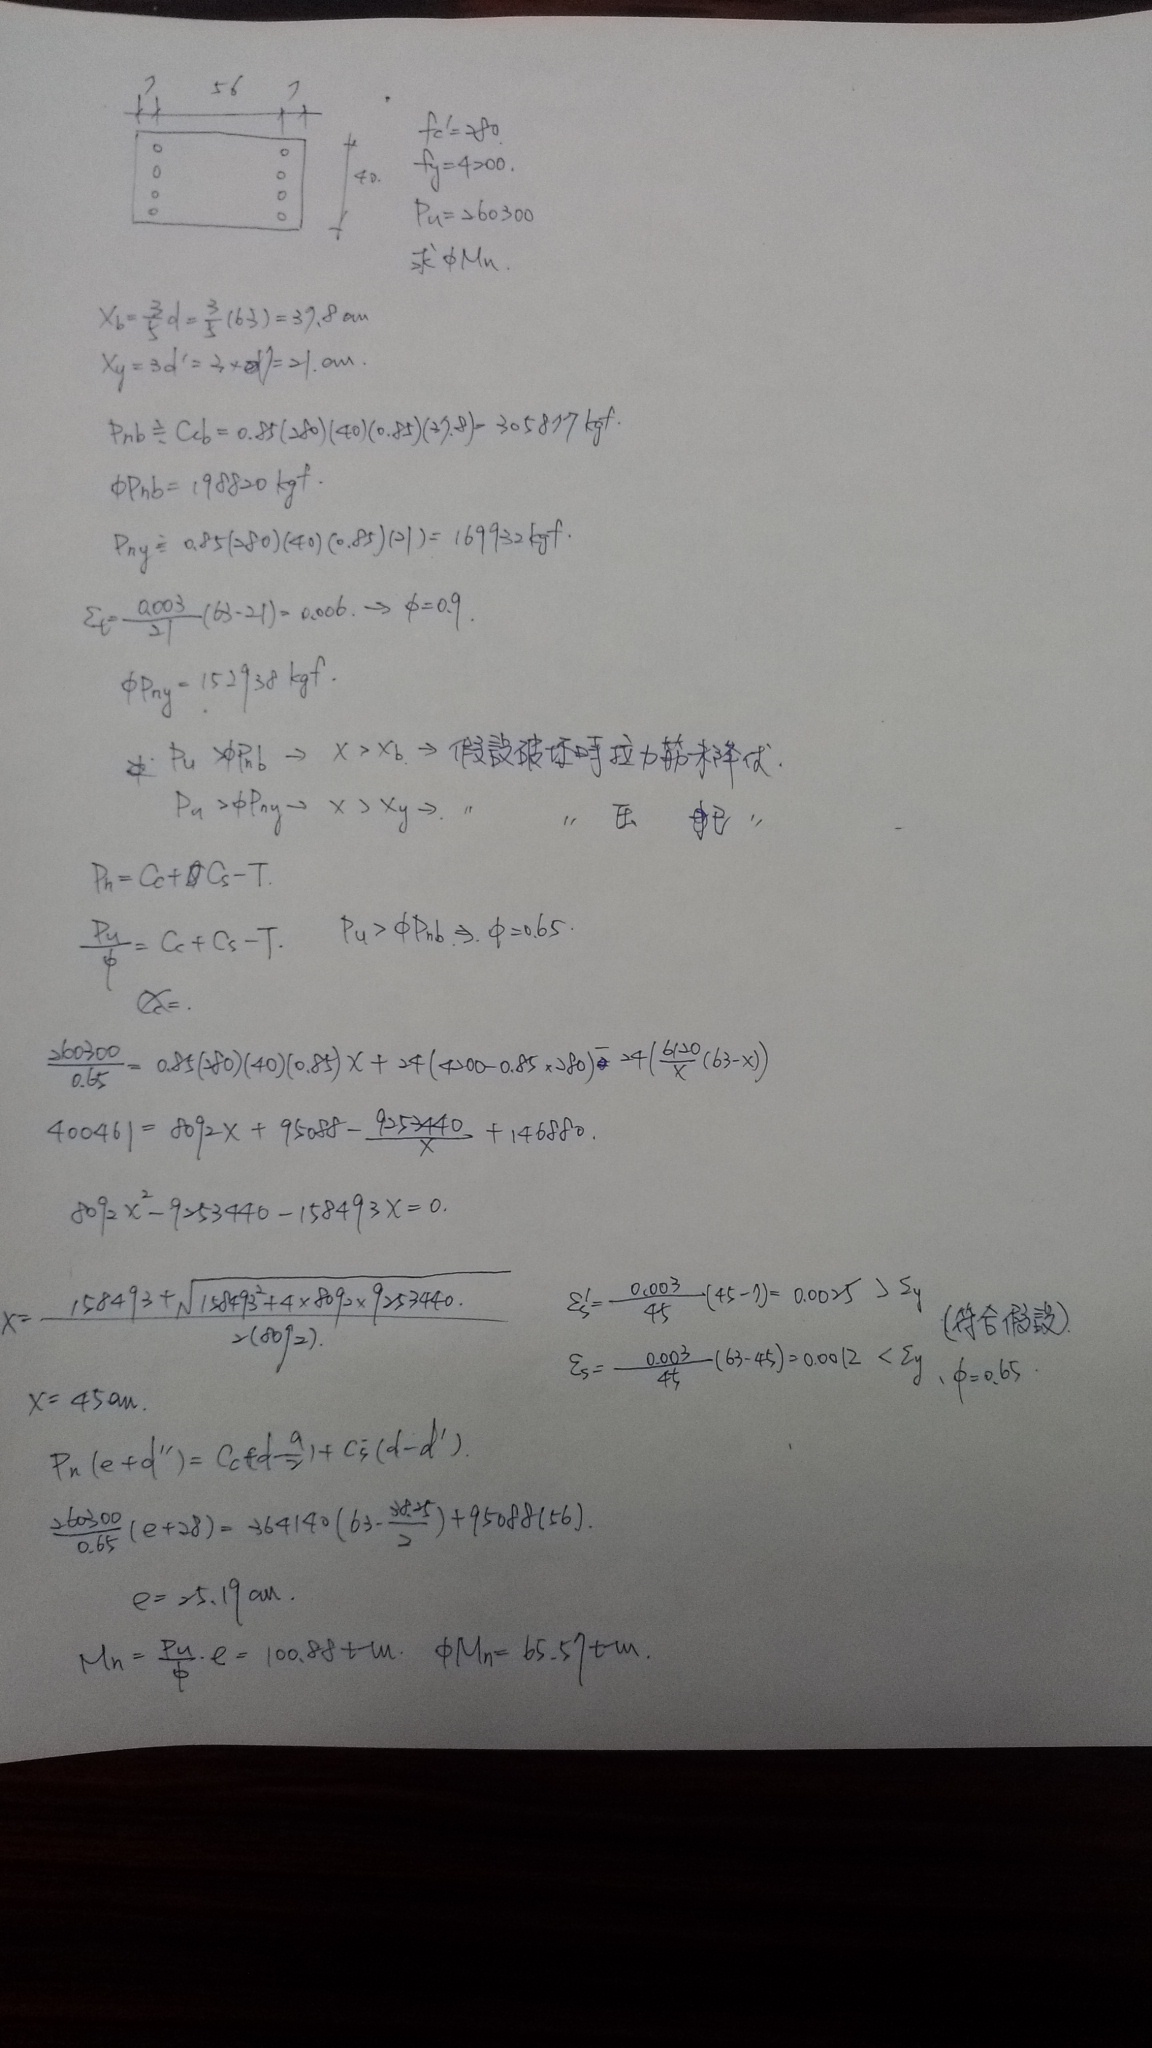 7 56 7
40.
fc'=280.
fy=4200.
Pu=260300
求φMn.
Xb=3/5d=3/5(63)=37.8cm
Xy=3d'=3×7=21.cm.
Pnb≒Ccb=0.85(280)(40)(0.85)(37.8)=305877kgf.
φPnb=198820kgf.
Pny≒0.85(280)(40)(0.85)(21)=169932kgf.
εt=0.003/21(63-21)=0.006.→φ=0.9.
φPny=152938kgf.
Pu>φPnb→X>Xb→假設破壞時拉力筋未降伏.
Pu>φPny→X>Xy→. 〃 〃 压 〃
Pn=Cc+Cs-T.
Pu/φ=Cc+Cs-T. Pu>φPnb⇒.φ=0.65.
260300/0.65=0.85(280)(40)(0.85)X+24(4200-0.85×280)-24(6120/X(63-X))
400461=8092X+95088-9253440/X+146880.
8092X²-9253440-158493X=0.
X=158493+√158493²+4×8092×9253440./2(8092).
εs'=0.003/45(45-7)=0.0025>εy
(符合假設).
εs=0.003/45(63-45)=0.0012<εy、φ=0.65.
X=45cm.
Pn(e+d'')=Cc(d-a/2)+Cs(d-d').
260300/0.65(e+28)=364140(63-38.25/2)+95088(56).
e=25.19cm.
Mn=Pu/φ.e=100.88t-m. φMn=65.57t-m.